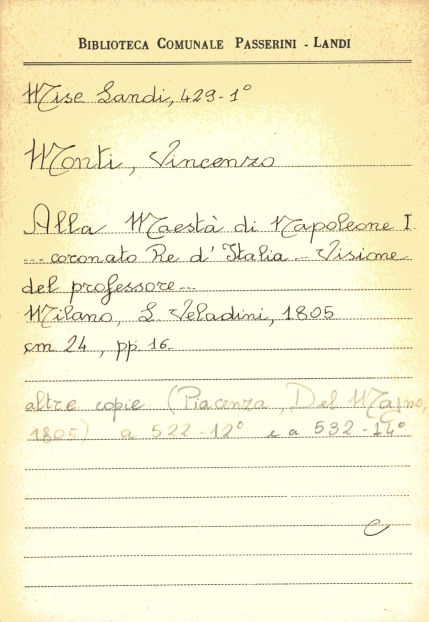 BIBLIOTECA COMUNALE PASSERINI - LANDI
Misc Landi, 429-1°
Monti, Vincenzo
Alla Maestà di Napoleone I.
... coronato Re d'Italia - Visione
del professore...
Milano, L. Veladini, 1805
cm 24, pp. 16.
altre copie (Piacenza, Del Majno,
1805) a 522-12° e a 532-14°
C